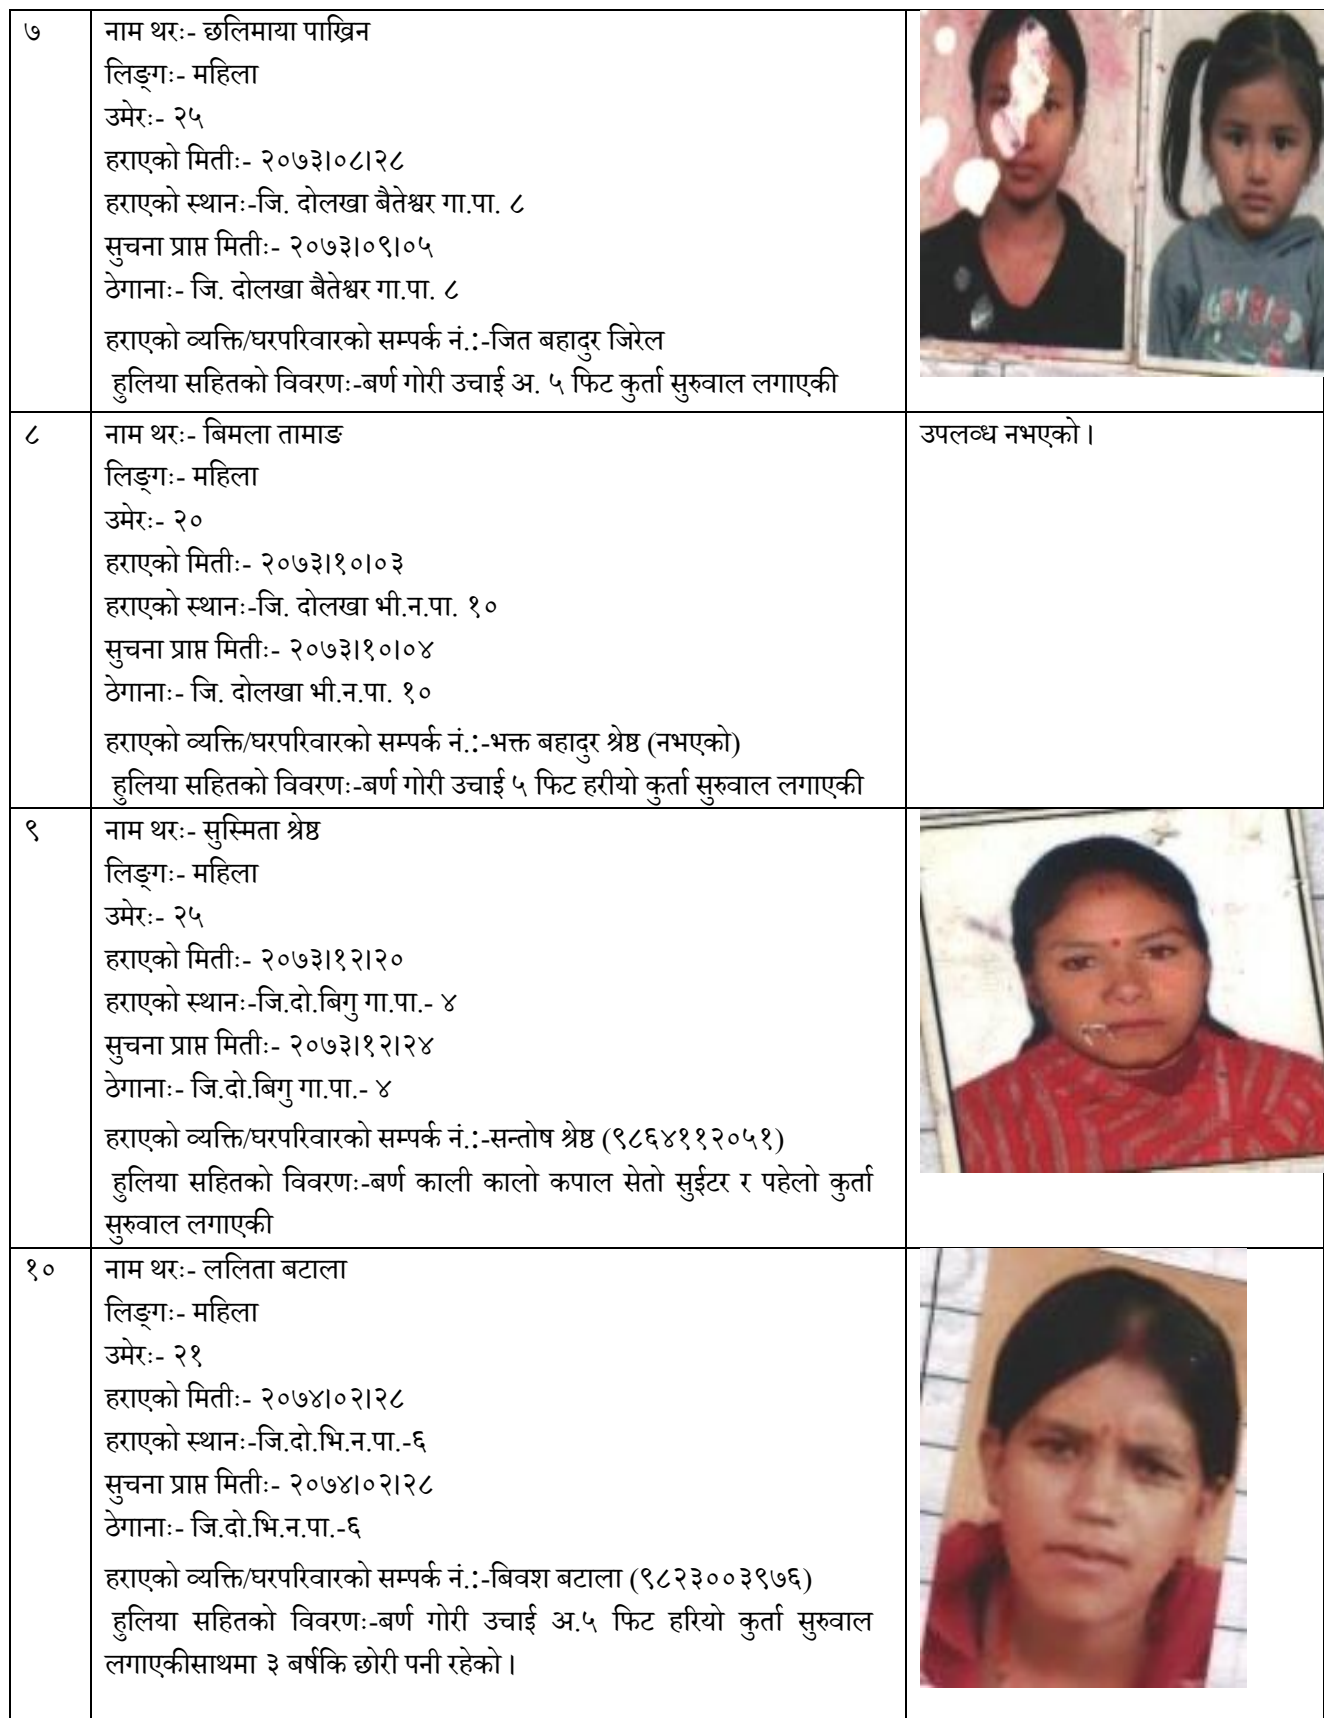 ७
नाम थरः- छलिमाया पाख्रिन
लिङ्गः- महिला
उमेरः- २५
हराएको मितीः- २०७३।०८।२८
हराएको स्थानः-जि. दोलखा बैतेश्वर गा.पा. ८
सुचना प्राप्त मितीः- २०७३।०९।०५
ठेगानाः- जि. दोलखा बैतेश्वर गा.पा. ८
हराएको व्यक्ति/घरपरिवारको सम्पर्क नं.:-जित बहादुर जिरेल
हुलिया सहितको विवरणः-बर्ण गोरी उचाई अ. ५ फिट कुर्ता सुरुवाल लगाएकी
८
नाम थरः- बिमला तामाङ
लिङ्गः- महिला
उमेरः- २०
हराएको मितीः- २०७३।१०।०३
हराएको स्थानः-जि. दोलखा भी.न.पा. १०
सुचना प्राप्त मितीः- २०७३।१०।०४
ठेगानाः- जि. दोलखा भी.न.पा. १०
हराएको व्यक्ति/घरपरिवारको सम्पर्क नं.:-भक्त बहादुर श्रेष्ठ (नभएको)
हुलिया सहितको विवरणः-बर्ण गोरी उचाई ५ फिट हरीयो कुर्ता सुरुवाल लगाएकी
उपलव्ध नभएको।
९
नाम थरः- सुस्मिता श्रेष्ठ
लिङ्गः- महिला
उमेरः- २५
हराएको मितीः- २०७३।१२।२०
हराएको स्थानः-जि.दो.बिगु गा.पा.- ४
सुचना प्राप्त मितीः- २०७३।१२।२४
ठेगानाः- जि.दो.बिगु गा.पा.- ४
हराएको व्यक्ति/घरपरिवारको सम्पर्क नं.:-सन्तोष श्रेष्ठ (९८६४११२०५१)
हुलिया सहितको विवरणः-बर्ण काली कालो कपाल सेतो सुईटर र पहेलो कुर्ता
सुरुवाल लगाएकी
१०
नाम थरः- ललिता बटाला
लिङ्गः- महिला
उमेरः- २१
हराएको मितीः- २०७४।०२।२८
हराएको स्थानः-जि.दो.भि.न.पा.-६
सुचना प्राप्त मितीः- २०७४।०२।२८
ठेगानाः- जि.दो.भि.न.पा.-६
हराएको व्यक्ति/घरपरिवारको सम्पर्क नं.:-बिवश बटाला (९८२३००३९७६)
हुलिया सहितको विवरणः-बर्ण गोरी उचाई अ.५ फिट हरियो कुर्ता सुरुवाल
लगाएकीसाथमा ३ बर्षकि छोरी पनी रहेको।